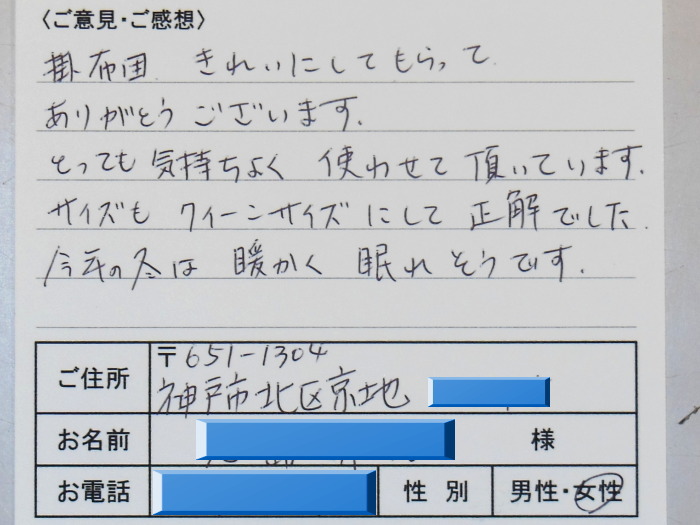 〈ご意見・ご感想〉
掛布団 きれいにしてもらって
ありがとうございます.
とっても気持ちよく 使わせて頂いています.
サイズも クィーンサイズにして 正解でした.
今年の冬は 暖かく 眠れそうです.
ご住所 〒651-1304
神戸市北区京地
お名前 様
お電話 性別 男性・女性